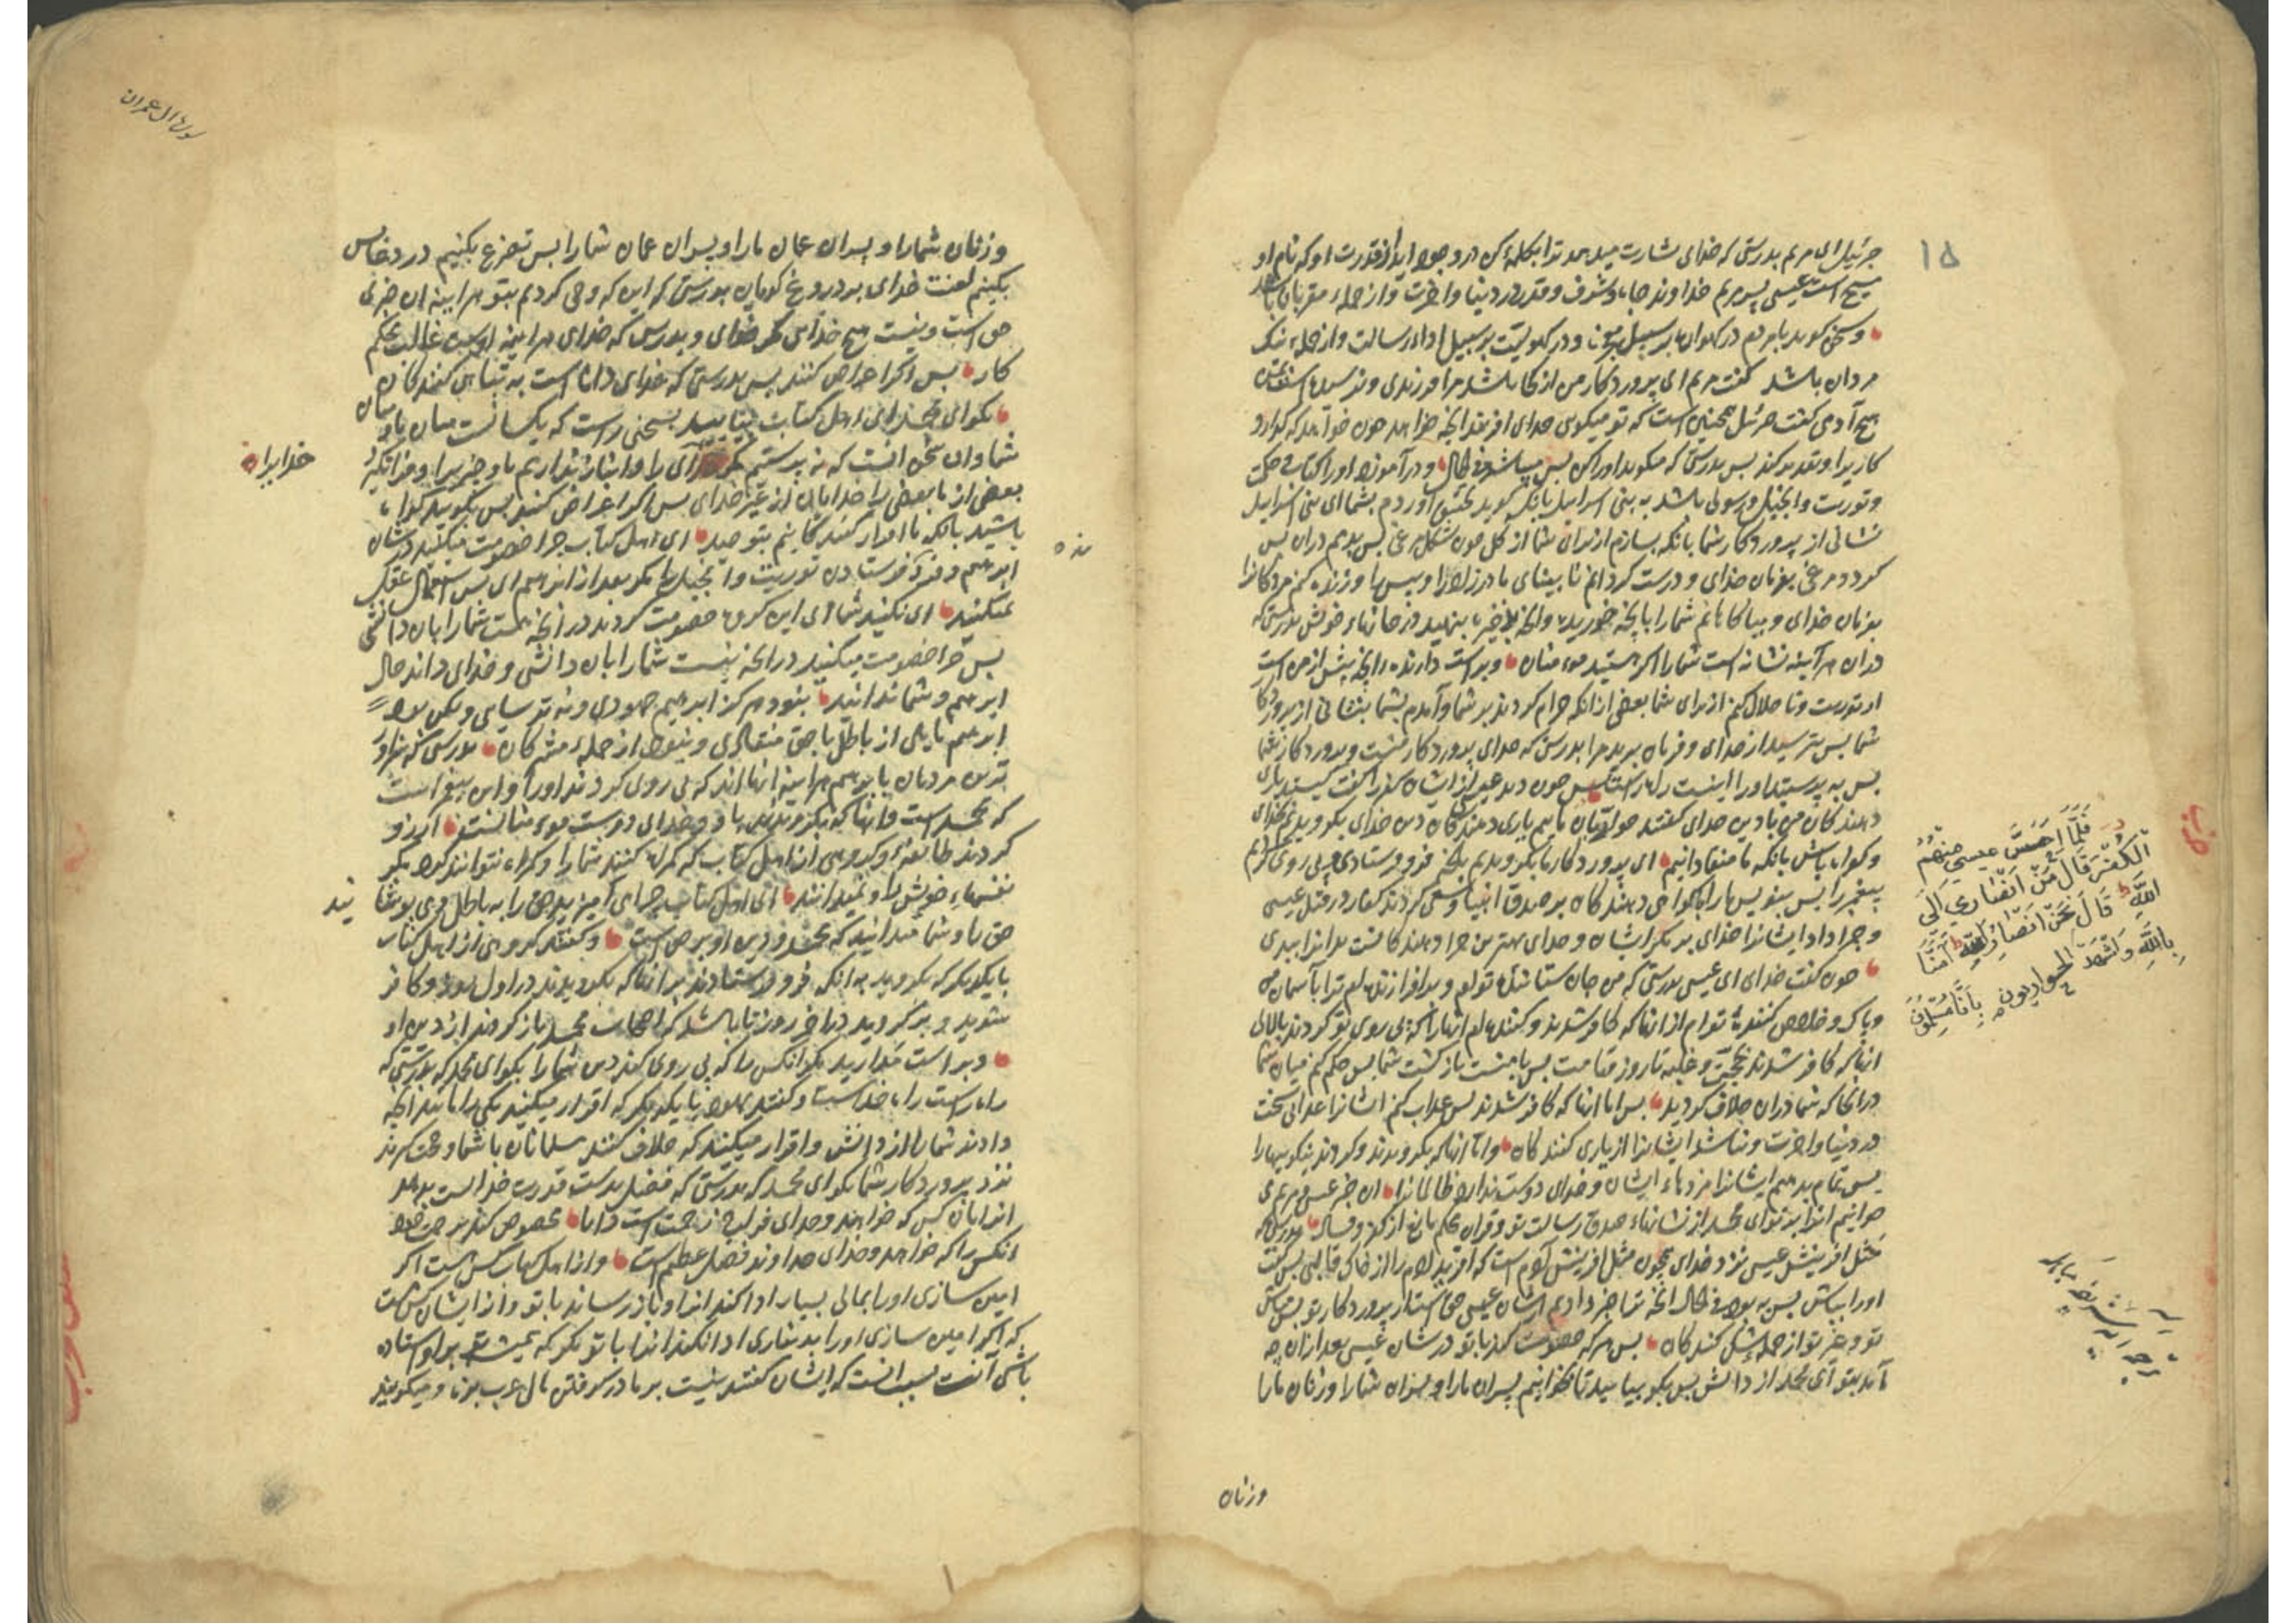 ۱۵
جبرئیل ای مریم بدرستی که خدای بشارت میدهد ترا بکلمهٔ کن در وجود اید از قدرت او که نام او
مسیح است عیسی پسر مریم خداوند جاه و شرف و قدر در دنیا و اخرت و از جملهء مقربان باشد
و سخن گوید با مردم در کهواره بر سبیل معجزه و در کهولیّت بر سبیل اداء رسالت و از جملهء نیک
مردان باشد گفت مریم ای پروردکار من از کجا باشد مرا فرزندی و نرسیده است بمن
هیچ آدمی گفت جبرئیل همچنین است که تو میکوی خدای افریند انجه خواهد چون خواهد که گذارد
کاریرا و تقدیر کند پس بدرستی که میکوید اورا کن پس میباشد فی الحال و در آموزد اورا کتاب و حکمت
و توریت و انجیل و رسولی باشد به بنی اسرایل بانکه گوید بتحقیق آوردم بشما ای بنی اسرایل
نشانی از پروردکار شما بانکه بسازم از برای شما از گل چون شکل مرغی پس بدمم دران پس
گردد مرغی بفرمان خدای و درست گردانم نابینای مادرزاد را و پیس را و زنده کنم مردکانرا
بفرمان خدای و بیاکاهانم شمارا بانچه خورید و انچه ذخیره بنهید در خانهاء خویش بدرستی که
دران هرآینه نشانه است شمارا اگر هستید مومنان و براست دارنده انچه پیش از من است
از توریت و تا حلال کنم از برای شما بعضی ازانکه حرام کردند بر شما و آمدم بشما بنشانی از پروردکار
شما پس بترسید از خدای و فرمان برید مرا بدرستی که خدای پروردکار منست و پروردکار شما
پس به پرستید اورا اینست راه راست پس چون دید عیسی از ایشان کفر را گفت کیستند یاری
دهندکان من با دین خدای گفتند حواریان ماییم یاری دهندکان دین خدای بگرویدیم بخدای
و گواه باش بانکه ما منقادانیم ای پروردکار ما بگرویدیم بانچه فرو فرستادی و پی روی کردیم
پیغمبر را پس بنویس مارا با گواهی دهندکان بر صدق انبیا و سعی کردند کفار در قتل عیسی
و جزا داد ایشانرا خدای بر مکر ایشان و خدای بهترین جزا دهندکانست بدانرا ببدی
چون گفت خدای ای عیسی بدرستی که من جان ستانندهٔ توام و برافرازندهام ترا بآسمان
و پاک و خلاص کنندهٔ توام از انها که کافر شدند و کنندهام انهارا که پی روی تو کردند بالای
انها که کافر شدند بحجّت و غلبه تا روز قیامت پس با منست بازگشت شما پس حکم کنم میان شما
در انجا که شما دران خلاف کردید پس اما انها که کافر شدند پس عذاب کنم ایشانرا عذابی سخت
در دنیا و اخرت و نباشد ایشانرا از یاری کنندکان و امّا انها که بگرویدند و کردند نیکوییهارا
پس تمام بدهیم ایشانرا مزدهاء ایشان و خدای دوست ندارد ظالمانرا این خبر عیسی و مریم می
خوانیم انرا بر تو ای محمد از نشانهاء صدق رسالت تو و قران محکم مانع از کفر و فساد بدرستی که
مثل افرینش عیسی نزد خدای همچون مثل افرینش آدم است که افرید ادم را از خاک قالبی پس گفت
اورا بباش پس ببود فی الحال انچه ترا خبر دادیم از شان عیسی حق است از پروردکار تو پس مباش
تو و غیر تو از جملهء شک کنندکان پس هر که خصومت کند با تو در شان عیسی بعد ازان چه
آمد بتو ای محمد از دانش پس بگو بیایید تا بخوانیم پسران مارا و پسران شمارا و زنان مارا
فَلَمَّا اَحَسَّ عیسی مِنْهُمُ
الْکُفْرَ قَالَ مَنْ اَنْصَاری اِلَی
اللّٰهِ قَالَ نَحْنُ اَنْصَارُ اللّٰهِ آمَنَّا
بِاللّٰهِ وَاشْهَدْ بِاَنَّا مُسْلِمُونَ
الحواریون
وزنان
سورة ال عمران
و زنان شمارا و پسران عمان مارا و پسران عمان شمارا پس تضرع بکنیم در دعا پس
بکنیم لعنت خدای بر دروغ گویان بدرستی که این که وحی کردیم بتو هرایینه ان خبری
حق است و نیست هیچ خدای مگر خدای و بدرستی که خدای هرایینه اوست غالب محکم
کار پس اگر اعراض کنند پس بدرستی که خدای داناست به تباهی کنندکان
بگو ای محمد ای اهل کتاب بیایید بسخنی راست که یکسانست میان ما و میان
شما و ان سخن انست که نه پرستیم مگر خدای را و انباز نداریم باو چیزیرا و فرا نگیرد
خدایرا
بعضی از ما بعضی را خدایان از غیر خدای پس اگر اعراض کنند پس بگویید گواه
باشید بانکه ما اقرار کنندکانیم بتوحید ای اهل کتاب چرا خصومت میکنید در شان
ابرهیم و فرو فرستاده نشد توریت و انجیل مگر بعد از ابرهیم ای پس استعمال عقل
نمیکنید ای نکنید شما ای این گروه خصومت کردید در انچه هست شمارا بان دانشی
پس چرا خصومت میکنید در انچه نیست شمارا بان دانشی و خدای داند حال
ابرهیم و شما ندانید نبود هرگز ابرهیم جهودی و نه ترسایی و لکن بود
ابرهیم مایل از باطل با حق منقادی و نبود از جملهء مشرکان بدرستی که سزاوار
ترین مردمان بابرهیم هرایینه انها اند که پی روی کردند اورا و این پیغمبر است
که محمد است و انها که بگرویدند باو و خدای دوست مومنانست آرزو
کردند طائفهٔ و گروهی از اهل کتاب که گمراه کنند شمارا و گمراه نتوانند کرد مگر
نفسهاء خویش را و نمیدانند ای اهل کتاب چرا می آمیزید حق را به باطل و می پوشانید
حق را و شما میدانید که محمد و دین او بر حق است و گفتند گروهی از اهل کتاب
با یکدیگر که بگروید به انکه فرو فرستادند بر انها که بگرویدند در اول روز و کافر
شوید و برگردید در اخر روز تا باشد که اصحاب محمد باز گردند از دین او
و براست مدارید مگر انکس را که پی روی کند دین شمارا بگو ای محمد که بدرستی که
راه راست راه خداست و گفتند جهودان با یکدیگر که اقرار میکنید یکی را مانند انچه
دادند شمارا از دانش و اقرار میکنند که خلاف کنند مسلمانان با شما و حجت گیرند
نزد پروردکار شما بگو ای محمد که بدرستی که فضل بدست قدرت خداست بدهد
انرا بان کس که خواهد و خدای فراخ رحمت است دانا مخصوص کند برحمت خود
انکس را که خواهد و خدای خداوند فضل عظیم است و از اهل کتاب کس هست اگر
امین سازی اورا بمالی بسیار ادا کند انرا و باز رساند با تو و از ایشان کس هست
که اگر امین سازی اورا بدیناری ادا نکند انرا با تو مگر که همیشه بر او ایستاده
باشی آنست بسبب انست که ایشان گفتند نیست بر ما در گرفتن مال عرب بزه و میگویند